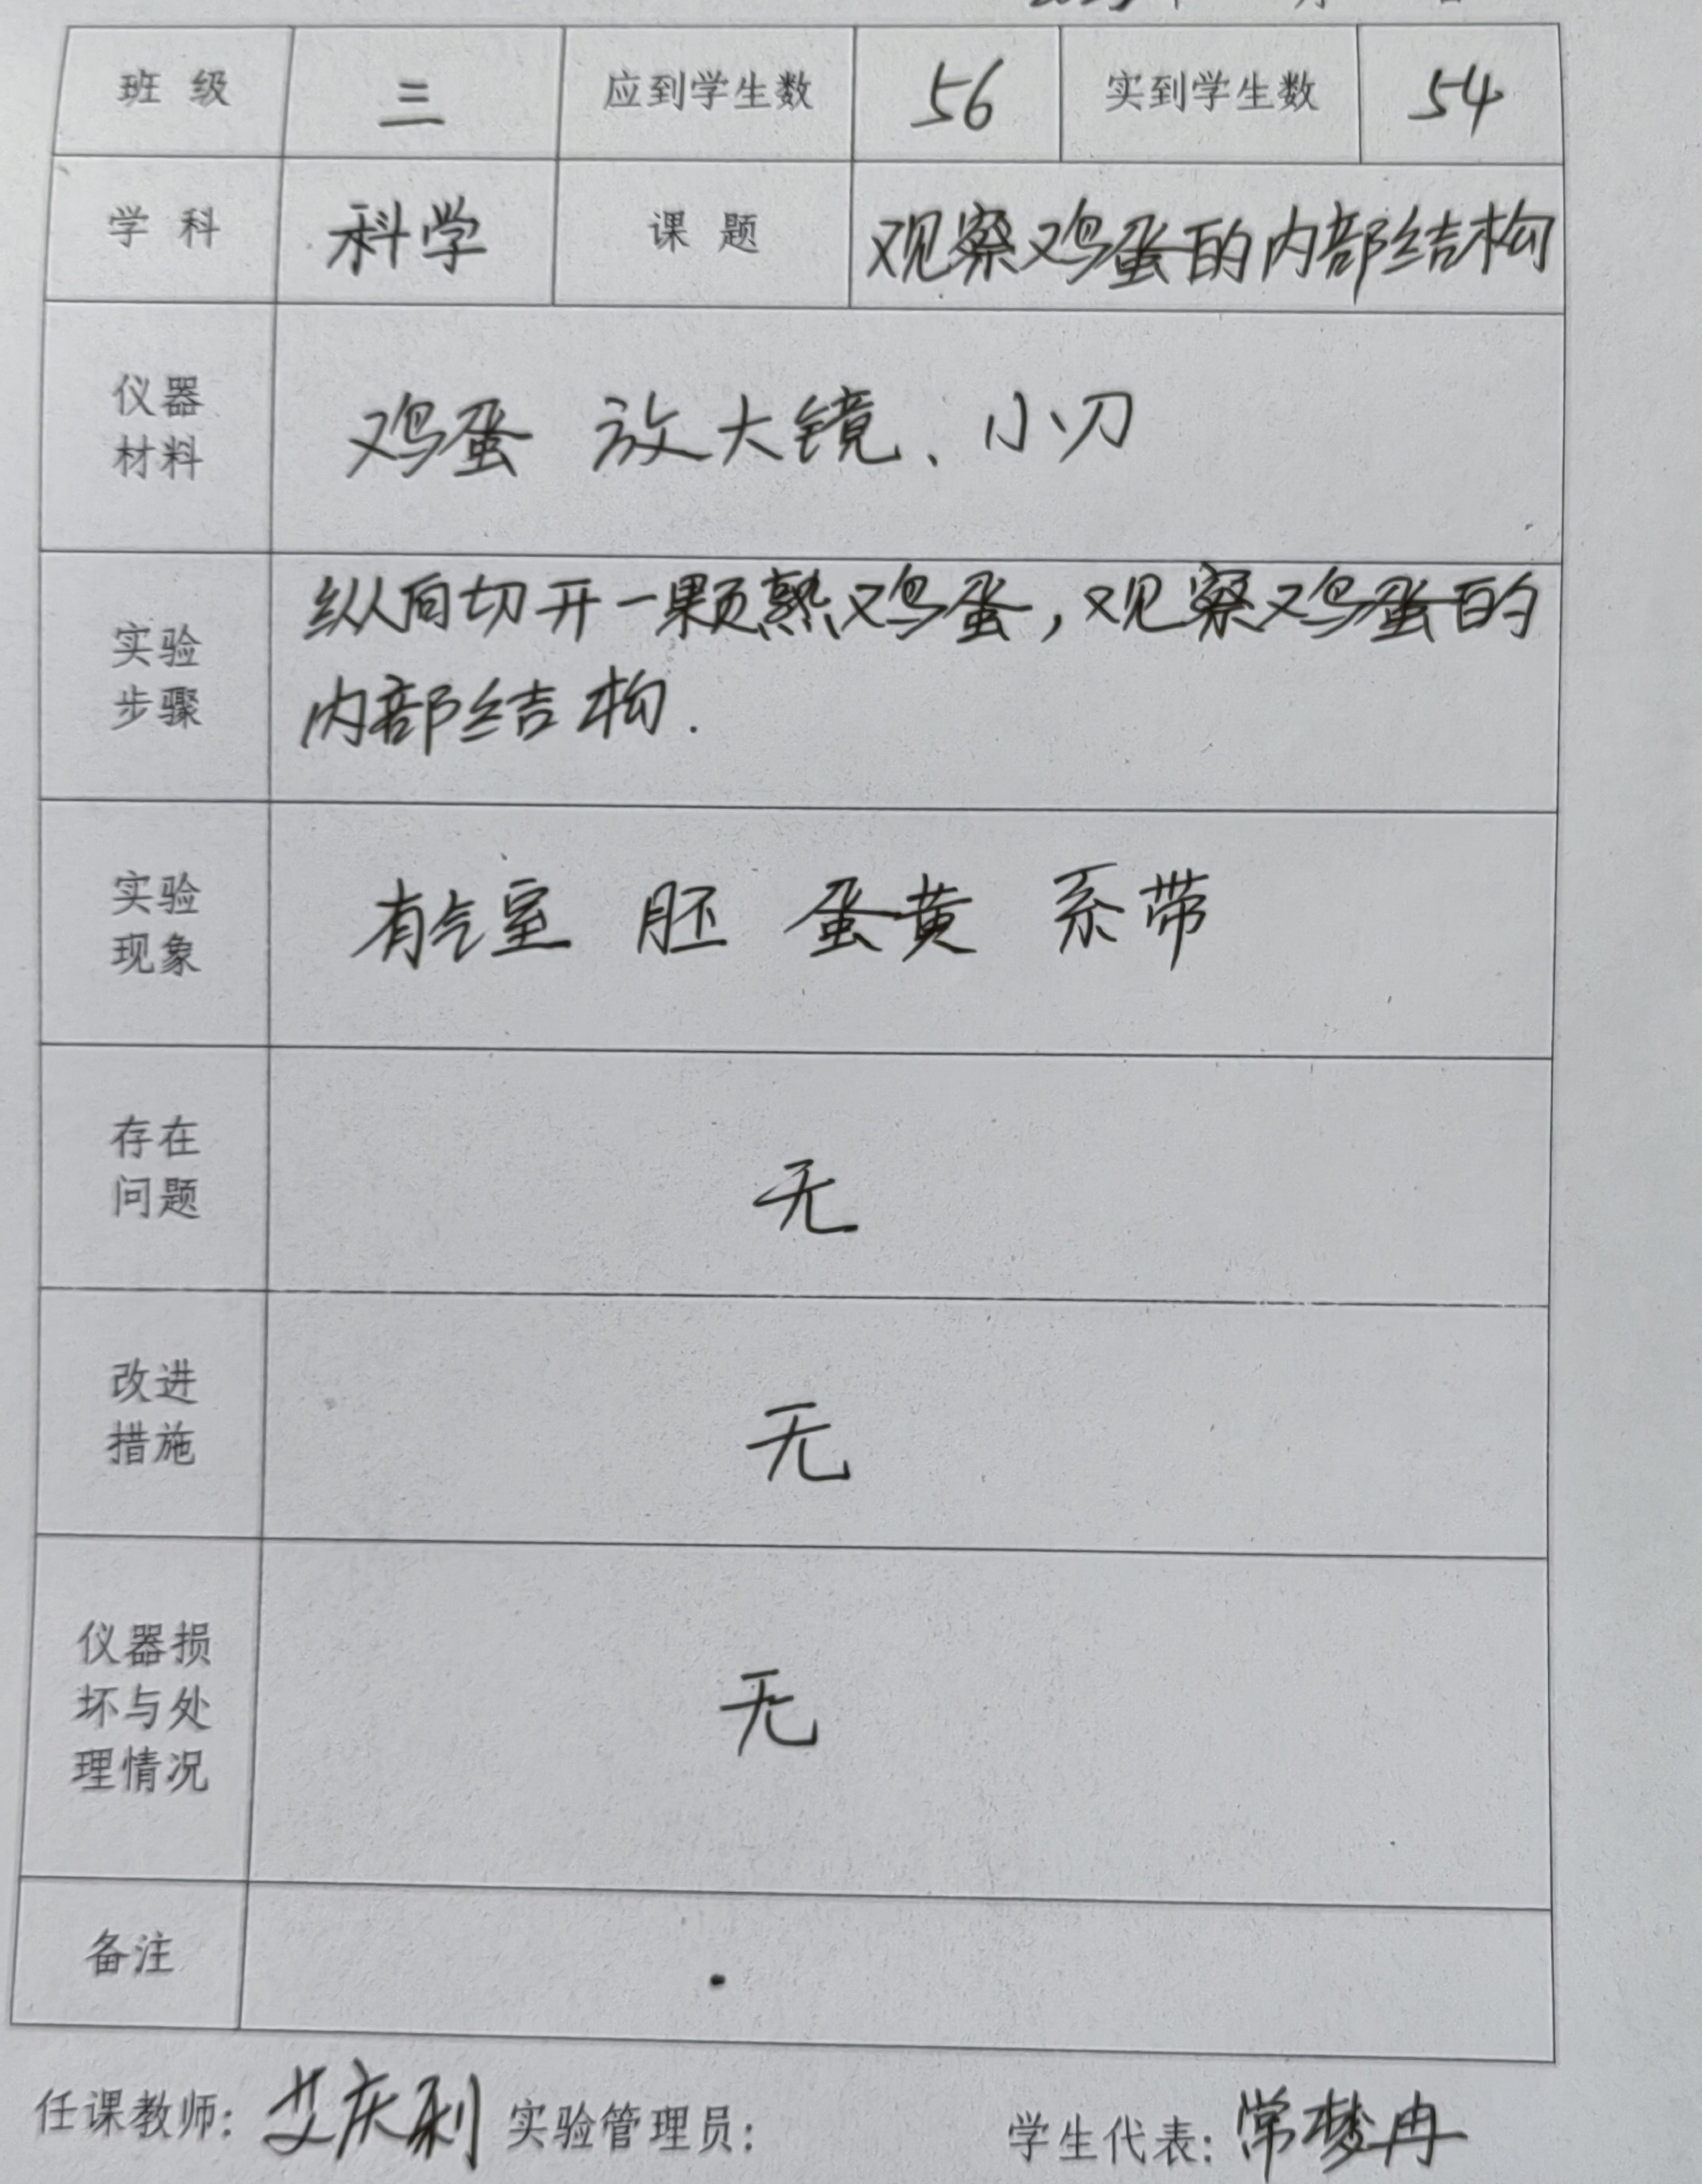 班 级 三 应到学生数 56 实到学生数 54
学 科 科学 课 题 观察鸡蛋的内部结构
仪器
材料
鸡蛋 放大镜、小刀
实验
步骤
纵向切开一颗熟鸡蛋,观察鸡蛋的
内部结构.
实验
现象
有气室 胚 蛋黄 系带
存在
问题
无
改进
措施
无
仪器损
坏与处
理情况
无
备注
任课教师: 艾庆利 实验管理员: 学生代表: 常梦冉